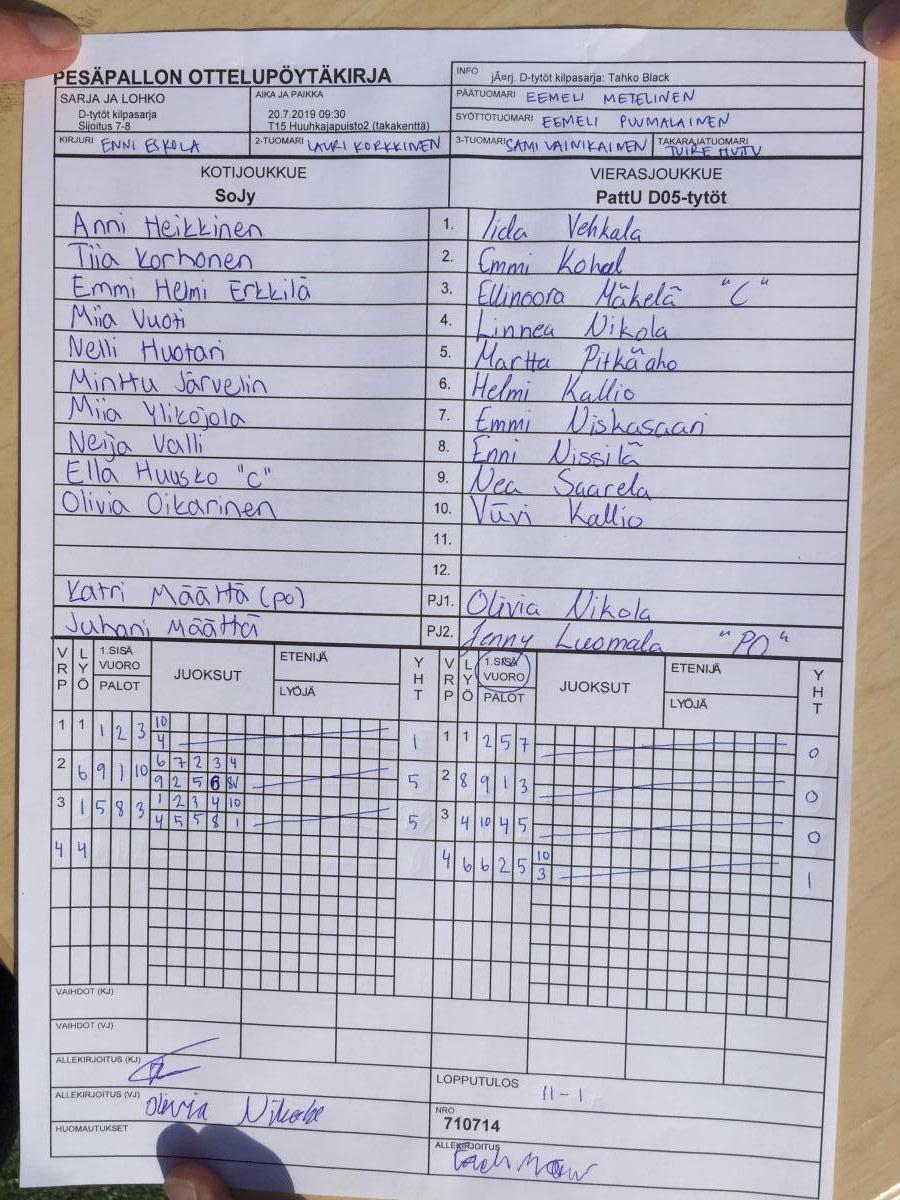 PESÄPALLON OTTELUPÖYTÄKIRJA
INFO jÃ¤rj. D-tytöt kilpasarja: Tahko Black
SARJA JA LOHKO
D-tytöt kilpasarja
Sijoitus 7-8
AIKA JA PAIKKA
20.7.2019 09:30
T15 Huuhkajapuisto2 (takakenttä)
PÄÄTUOMARI EEMELI METELINEN
SYÖTTÖTUOMARI EEMELI PUUMALAINEN
KIRJURI ENNI ESKOLA
2-TUOMARI LAURI KORKKINEN
3-TUOMARI SAMI VAINIKAINEN
TAKARAJATUOMARI TUIRE HUTTU
KOTIJOUKKUE
SoJy
VIERASJOUKKUE
PattU D05-tytöt
Anni Heikkinen 1. Iida Vehkala
Tiia Korhonen 2. Emmi Kohal
Emmi Helmi Erkkilä 3. Ellinoora Mäkelä "C"
Miia Vuoti 4. Linnea Nikola
Nelli Huotari 5. Martta Pitkäaho
Minttu Järvelin 6. Helmi Kallio
Miia Ylikojola 7. Emmi Niskasaari
Neija Valli 8. Enni Nissilä
Ella Huusko "C" 9. Nea Saarela
Olivia Oikarinen 10. Viivi Kallio
11.
12.
Katri Määttä (po) PJ1. Olivia Nikola
Juhani Määttä PJ2. Jenny Luomala "PO"
VRP LYÖ 1.SISÄ VUORO PALOT JUOKSUT ETENIJÄ LYÖJÄ YHT VRP LYÖ 1.SISÄ VUORO PALOT JUOKSUT ETENIJÄ LYÖJÄ YHT
1 1 1 2 3 10 1 1 1 2 5 7 0
4
2 6 9 1 10 6 7 2 3 4 5 2 8 9 1 3 0
9 2 5 6
3 1 5 8 3 1 2 3 4 10 5 3 4 10 4 5 0
4 5 5 8 1
4 4 4 6 6 2 5 10 1
3
VAIHDOT (KJ)
VAIHDOT (VJ)
ALLEKIRJOITUS (KJ)
ALLEKIRJOITUS (VJ) Olivia Nikola
HUOMAUTUKSET
LOPPUTULOS 11-1
NRO
710714
ALLEKIRJOITUS